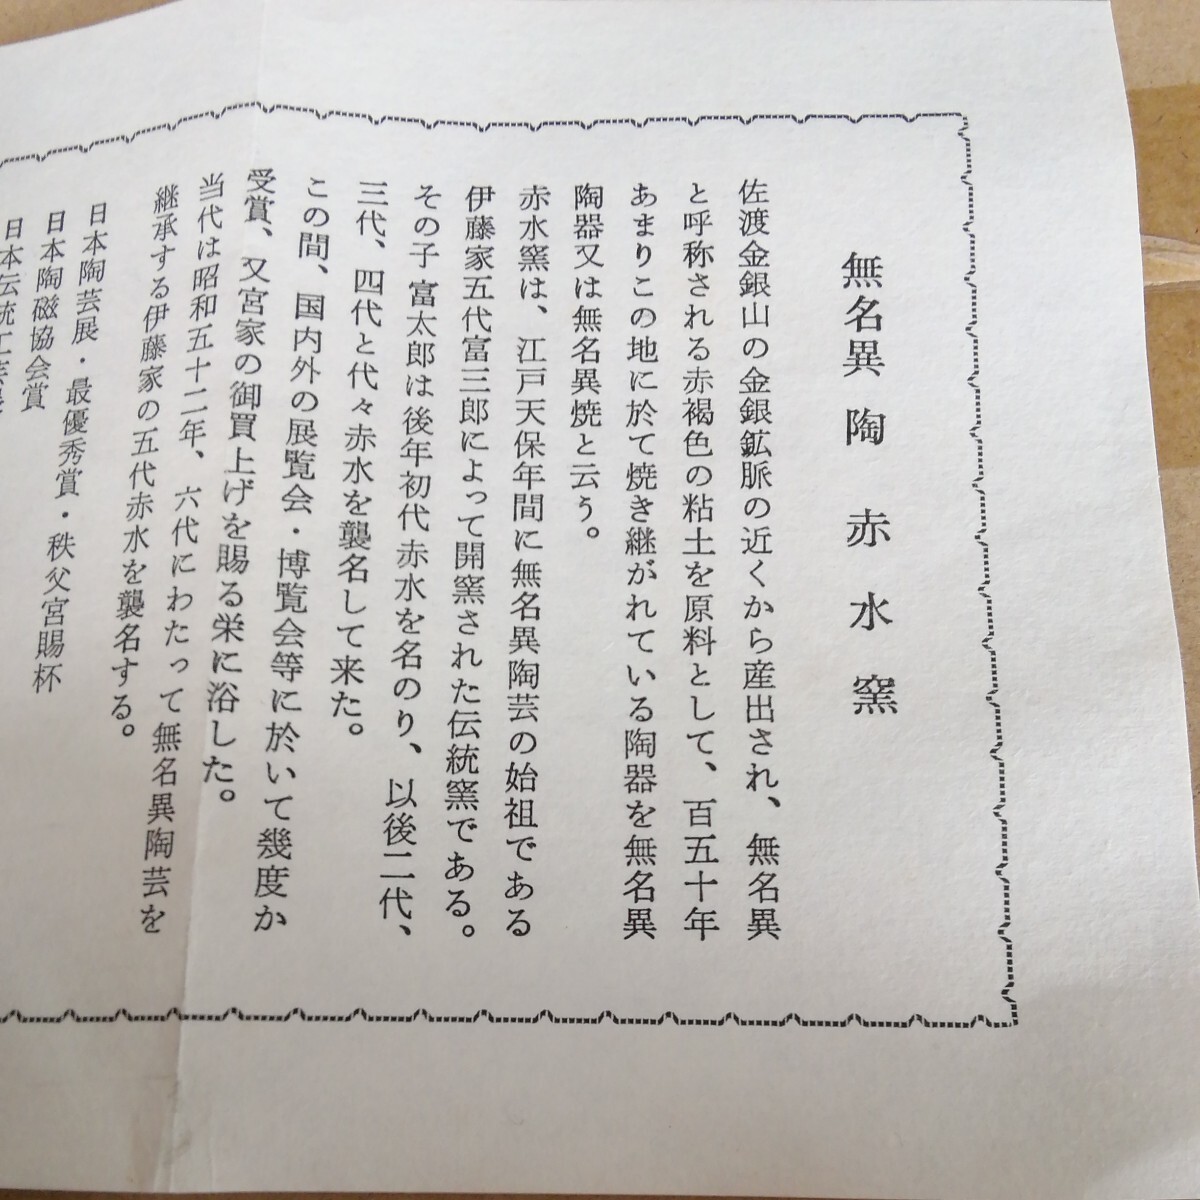 無名異陶 赤水窯
佐渡金銀山の金銀鉱脈の近くから産出され、無名異
と呼称される赤褐色の粘土を原料として、百五十年
あまりこの地に於て焼き継がれている陶器を無名異
陶器又は無名異焼と云う。
赤水窯は、江戸天保年間に無名異陶芸の始祖である
伊藤家五代富三郎によって開窯された伝統窯である。
その子富太郎は後年初代赤水を名のり、以後二代、
三代、四代と代々赤水を襲名して来た。
この間、国内外の展覧会・博覧会等に於いて幾度か
受賞、又宮家の御買上げを賜る栄に浴した。
当代は昭和五十二年、六代にわたって無名異陶芸を
継承する伊藤家の五代赤水を襲名する。
日本陶芸展・最優秀賞・秩父宮賜杯
日本陶磁協会賞
日本伝統工芸展